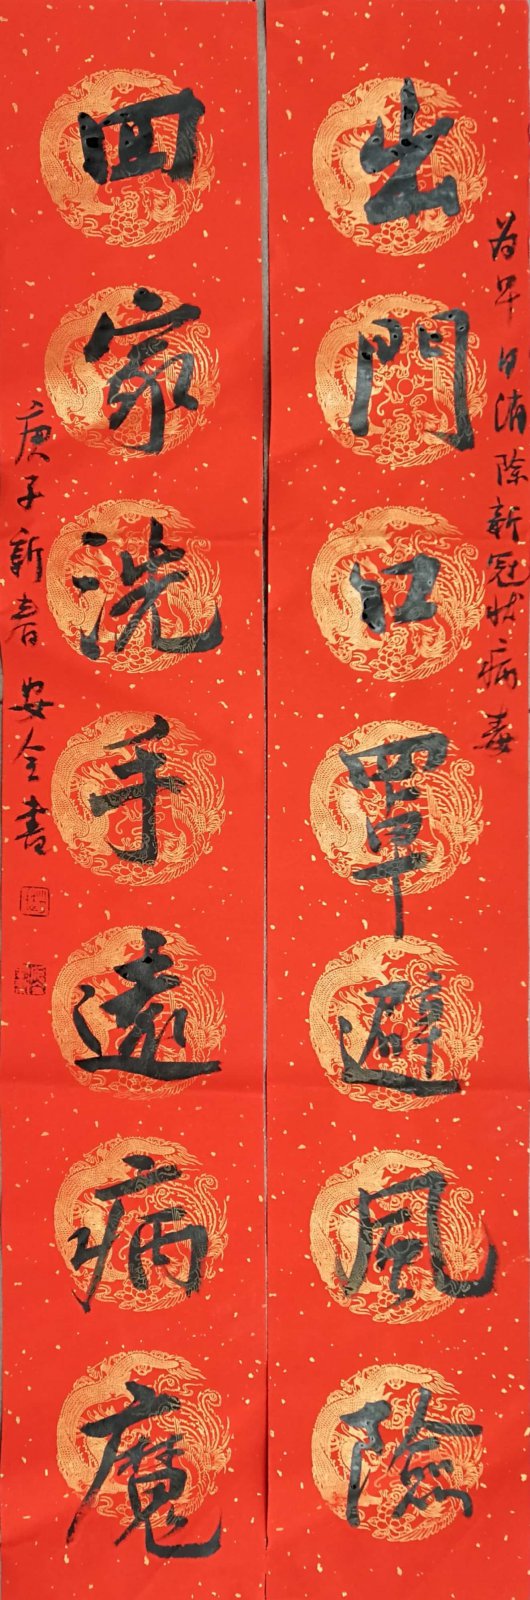 为早日消除新冠状病毒
出門口罩避風險
囬家洗手遠病魔
庚子新春安全書